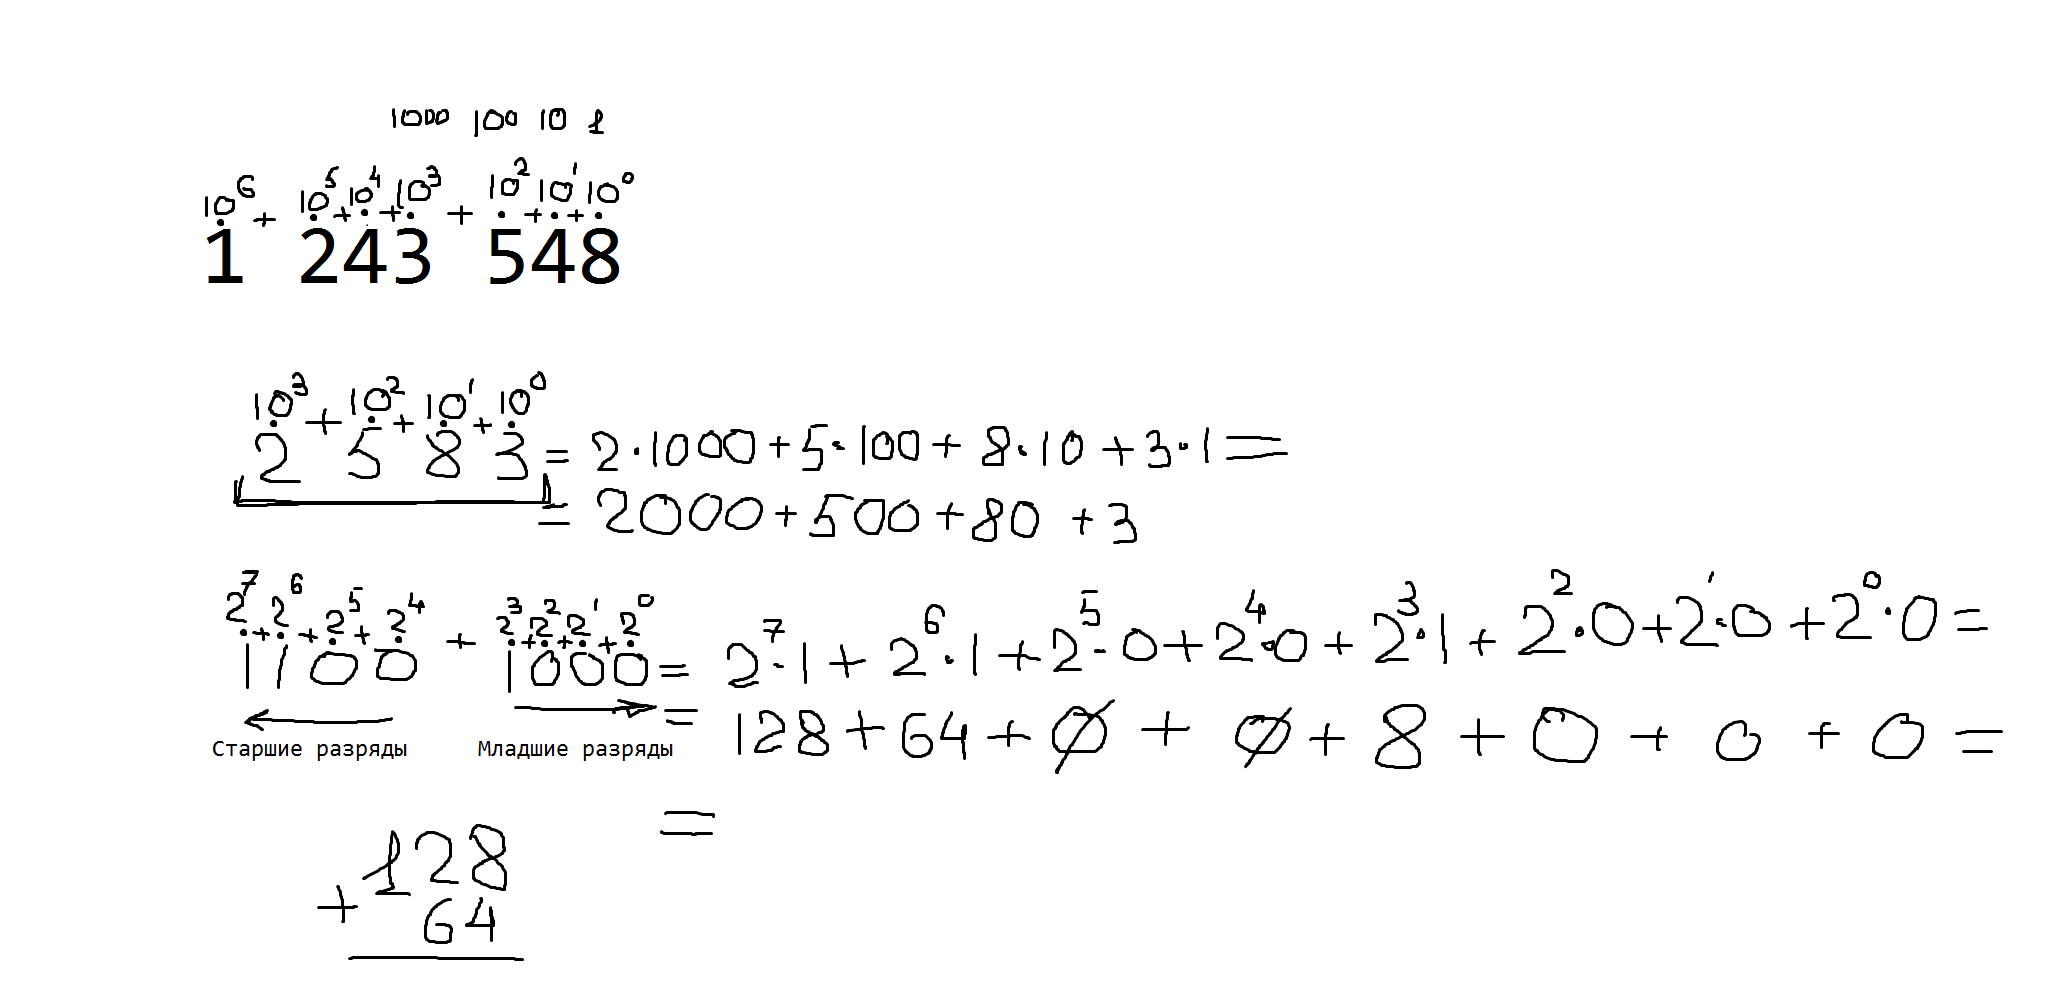 1000 100 10 1
10⁶ + 10⁵ + 10⁴ + 10³ + 10² + 10¹ + 10⁰
1 243 548
10³ + 10² + 10¹ + 10⁰
2 5 8 3 = 2·1000 + 5·100 + 8·10 + 3·1 =
= 2000 + 500 + 80 + 3
2⁷ + 2⁶ + 2⁵ + 2⁴ + 2³ + 2² + 2¹ + 2⁰
1100 1000 = 2⁷·1 + 2⁶·1 + 2⁵·0 + 2⁴·0 + 2³·1 + 2²·0 + 2¹·0 + 2⁰·0 =
= 128 + 64 + 0 + 0 + 8 + 0 + 0 + 0 =
Старшие разряды Младшие разряды
=
128
+
64